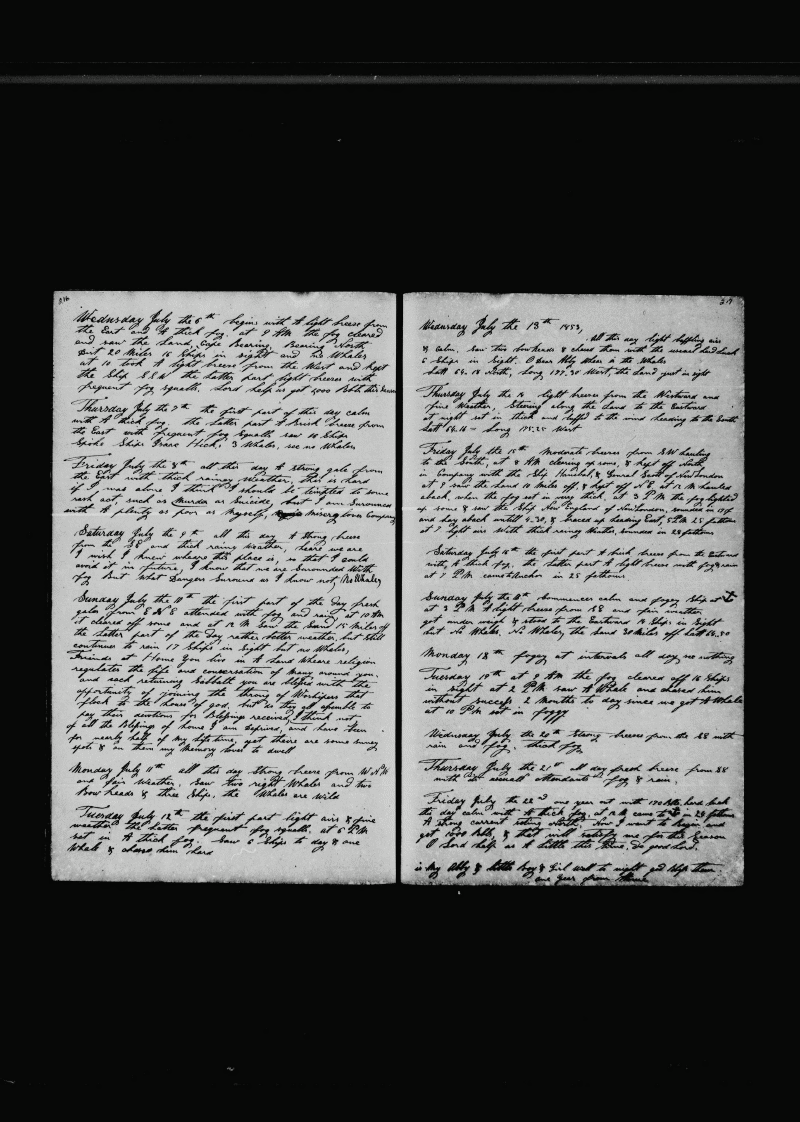 216
Wednesday July the 6th begins with A light breese from
the East and A thick fog. at 9 AM the fog cleared
and saw the Land, Cape Bearing, Bearing North
Dist 20 Miles 15 Ships in sight and no Whales
at 10 took A light breese from the West and kept
the Ship S.E. the latter part light breeses with
frequent fog squalls. Lord help us yet 1000 Bbls this
Thursday July the 7th the first part of this day calm
with A thick fog. the latter part A brisk breese from
the East with frequent fog squalls saw 10 Ships
Spoke Ships Isaac Hicks, 3 Whales, see no Whales
Friday July the 8th all this day A strong gale from
the East with thick rainey Weather, this is hard
if I was alone I think I should be tempted to some
rash act, such as Murder or Suicide, but I am Surounded
with A plenty as poor as Myself, Misery loves Company
Saturday July the 9th all this day A strong breese
from the SE and thick rainy weather, heare we are
I wish I knew wheare this place is, so that I could
avoid it in future, I know that we are Surounded With
fog But What Dangers Suround us I know not, No Whales
Sunday July the 10th the first part of the day fresh
gales from E N E attended with fog and rain, at 10 AM
it cleared off some and at 12 M saw the Land 15 Miles off
the latter part of the Day rather better weather, but Still
continues to rain 17 Ships in Sight but no Whales,
Friends at Home You live in A Land Wheare religion
regulates the life and conversation of Many around you.
and each returning Sabbath you are blessed with the
opportunity of joining the throng of Worshipers that
flock to the house of god. but do they all asemble to
pay their devotions for Blessings received, I think not
of all the Blessings of home I am deprived, and have been
for nearly half of my life time, yet theire are some sunny
spots & on them my Memory loves to dwell
Monday July 11th all this day Strong breese from W N W
and fair Weather, saw two right Whales and two
Bow heads & three Ships, the Whales are Wild
Tuesday July 12th the first part light airs & fine
weather the latter frequent fog squalls. at 6 P.M
set in A thick fog. Saw 6 Ships to day & one
Whale & chased him hard
217
Wednesday July the 13th 1853,
All this day light baffling airs
& calm, saw two bowheads & chased them with the usual hard luck
6 Ships in Sight. O Dear Abby Where is the Whales
Latt 64.18 North, Long 177.30 West, the Land just in sight
Thursday July the 14 light breeses from the Westward and
fine Weather, Steering along the Land to the Eastward
at night set in thick and luffed to the wind heading to the South
Latt 64.16 - Long 175.25 West
Friday July the 15th Moderate breeses from SW hauling
to the South, at 8 AM clearing up some, & kept off North
in Company with the Ship Hannibal, & General Scott of New London
at 9 saw the Land 10 Miles off, & kept off N E. at 12 M hauled
aback, when the fog set in very thick, at 3 P.M the fog lighted
up some & saw the Ship New England of New London, sounded in 17 f
and lay aback untill 4.30, & braced up heading East, 5 P.M 25 fathoms
at 7 light airs With thick rainey Weather, sounded in 28 fathoms
Saturday July 16th the first part A brisk breese from the Eastward
with A thick fog, the latter part A light breese with fog & rain
at 7 P.M came to Anchor in 25 fathoms
Sunday July the 17th Commences calm and foggy Ship at
at 3 P.M A light breese from SE and fair weather
got under weigh & stood to the Eastward 10 Ships in Sight
but No Whales, No Whales, the Land 30 Miles off Latt 64.50
Monday 18th foggy at intervals all day see nothing
Tuesday 19th at 9 AM the fog cleared off 16 Ships
in Sight at 2 P.M saw A Whale and chased him
without success 2 Months to day since we got A Whale
at 10 P.M set in foggy
Wednesday July the 20th Strong breeses from the SE with
rain and fog. thick fog
Thursday July the 21st all day fresh breese from SE
with its usuall Attendants fog & rain.
Friday July the 22nd one year out with 170 Bbls. hard luck
the day calm with A thick fog, at 12 M came to in 28 fathoms
A strong current setting North. Now I want to begin and
get 1000 Bbls, & that will satisfy me for this Season
O Lord help us A little this time. Do good Lord.
is My Abby & little boy & Girl well to night god bless them.
one year from Home